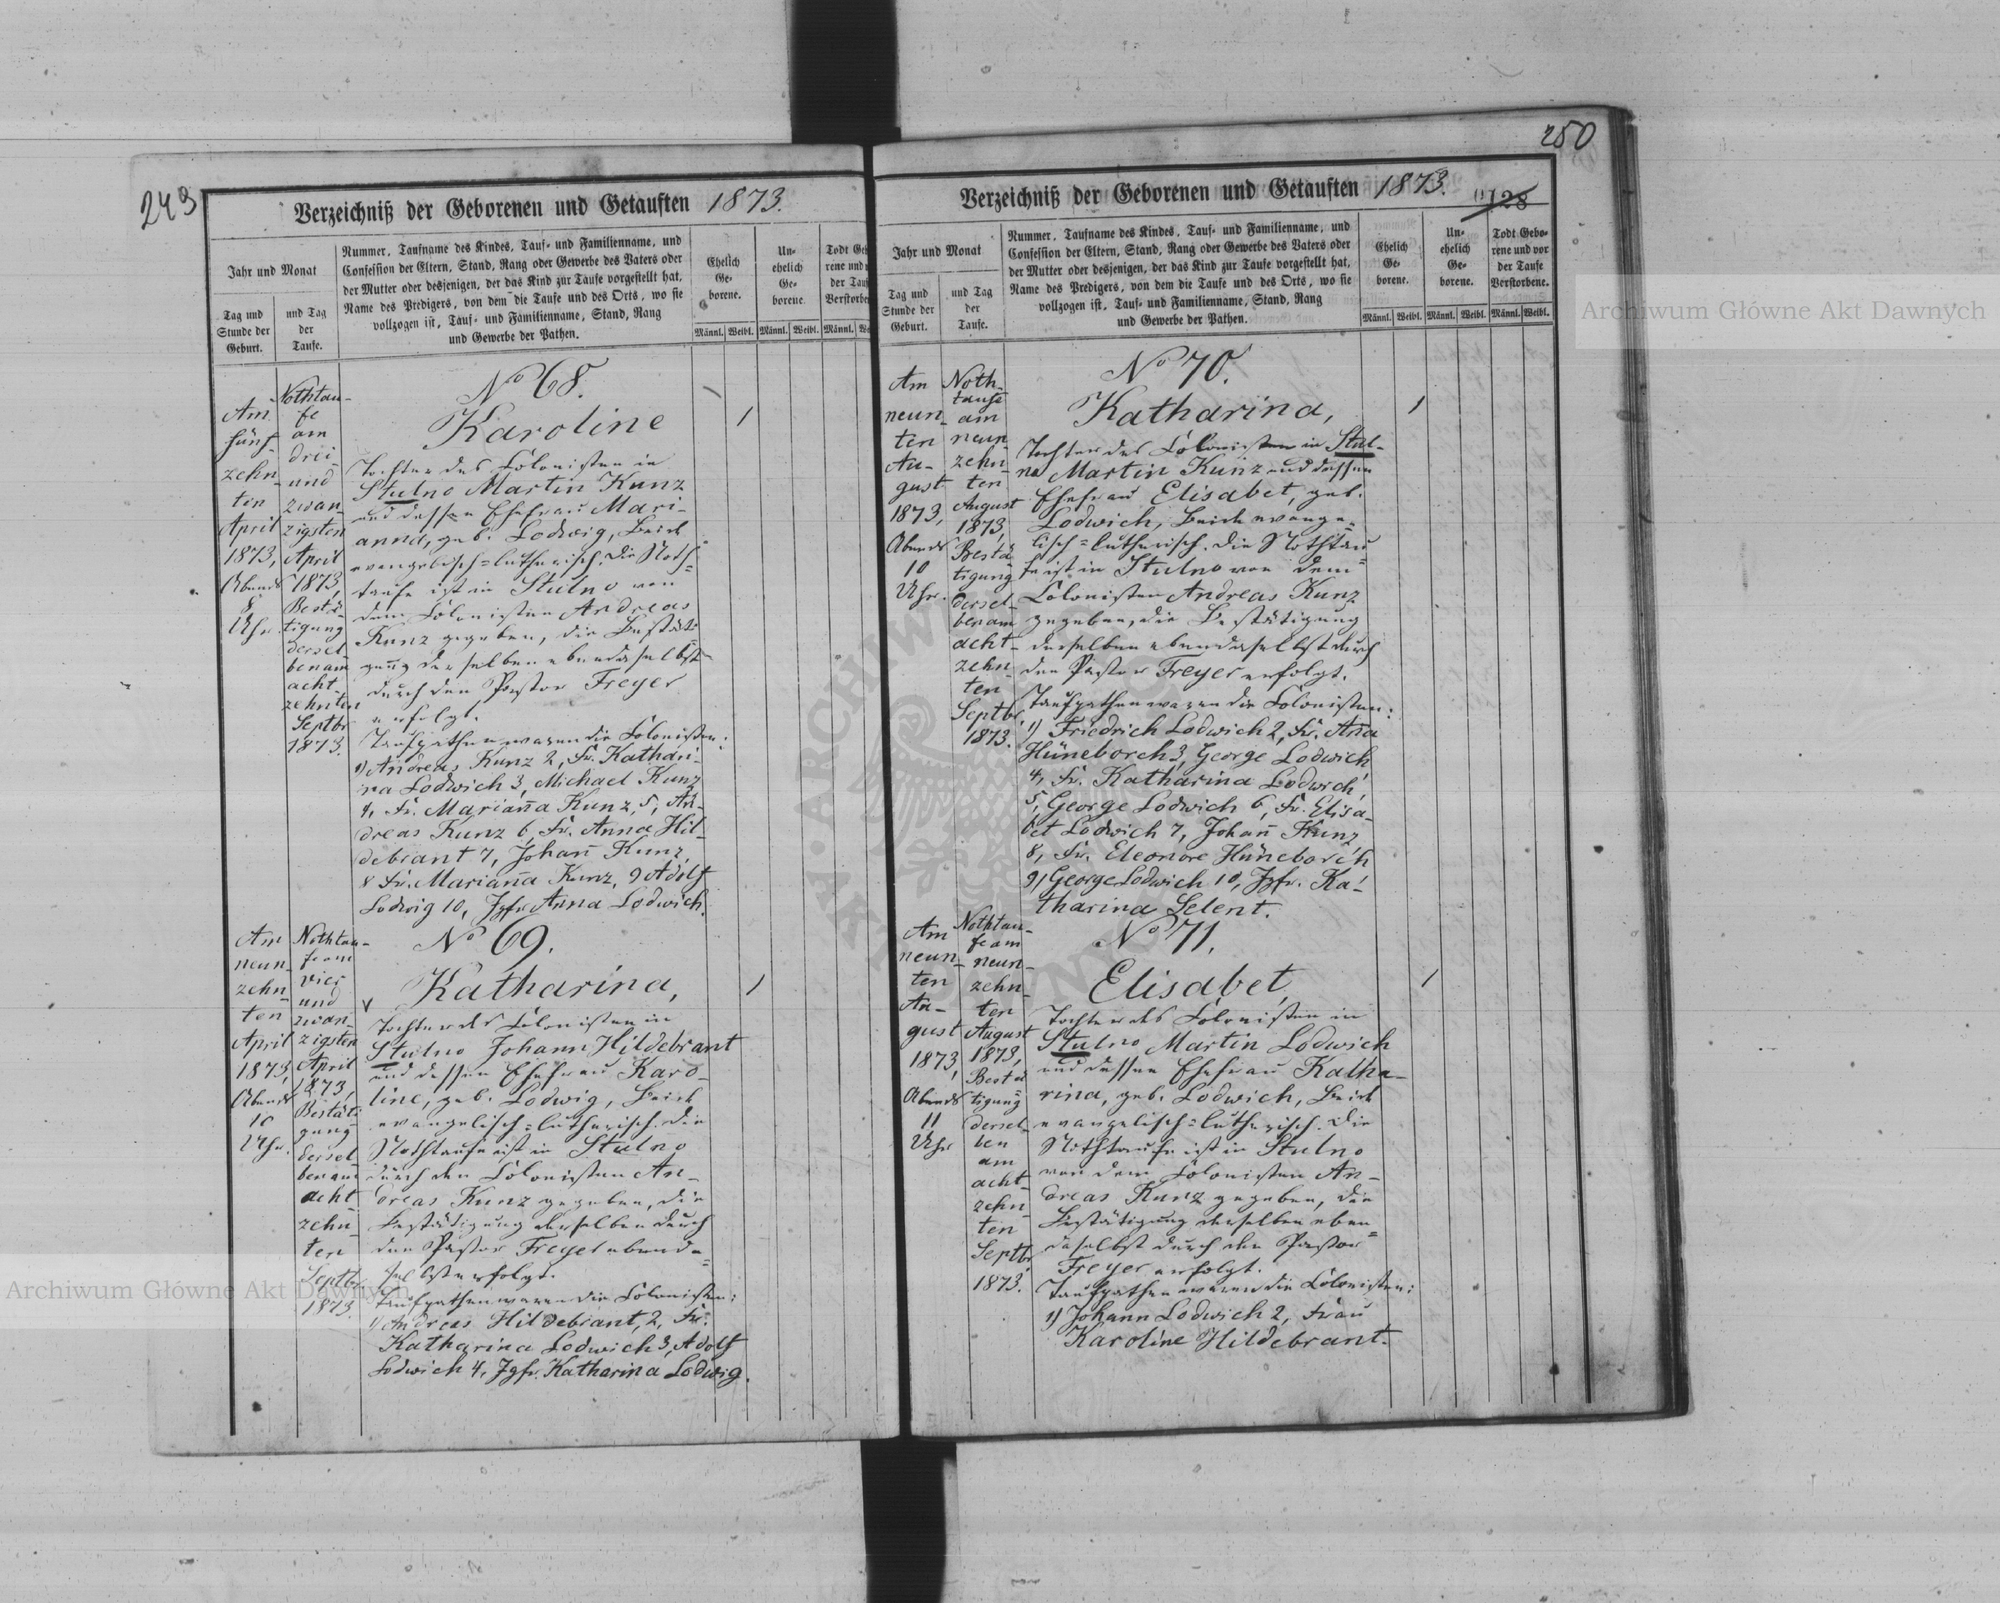 249
Verzeichniß der Geborenen und Getauften 1873.
Jahr und Monat
Tag und
Stunde der
Geburt.
und Tag
der
Taufe.
Nummer, Taufname des Kindes, Tauf- und Familienname, und
Confession der Eltern, Stand, Rang oder Gewerbe des Vaters oder
der Mutter oder desjenigen, der das Kind zur Taufe vorgestellt hat,
Name des Predigers, von dem die Taufe und des Orts, wo sie
vollzogen ist, Tauf- und Familienname, Stand, Rang
und Gewerbe der Pathen.
Ehelich
Ge-
borene.
Un-
ehelich
Ge-
borene
Todt Geb
rene und
der Tau
Verstorbe
Männl. Weibl. Männl. Weibl. Männl. We
Am
fünf-
zehn-
ten
April
1873,
Abends
8
Uhr
Nothtau-
fe
am
drei-
und
zwan-
zigsten
April
1873,
Bestä-
tigung
dersel-
ben am
acht-
zehnten
Septbr
1873.
No 68.
Karoline
Tochter des Colonisten in
Stulno Martin Kunz
und dessen Ehefrau Mari-
anna, geb. Lodwig, Beide
evangelisch=lutherisch. Die Noth=
taufe ist in Stulno von
dem Colonisten Andreas
Kunz gegeben, die Bestäti=
gung derselben ebendaselbst
durch den Pastor Freyer
erfolgt.
Taufpathen waren die Colonisten:
1, Andreas Kunz 2, Fr. Kathari-
na Lodwich 3, Michael Kunz
4, Fr. Marianna Kunz, 5, An-
dreas Kunz 6, Fr. Anna Hil-
debrant 7, Johann Kunz,
8 Fr. Marianna Kunz, 9 Adolf
Lodwig 10, Jgfr. Anna Lodwich.
Am
neun-
zehn-
ten
April
1873,
Abends
10
Uhr.
Nothtau-
fe am
vier
und
zwan-
zigsten
April
1873,
Bestäti-
gung
dersel-
ben am
acht-
zehn-
ten
Septbr
1873.
No 69.
Katharina,
Tochter des Colonisten in
Stulno Johann Hildebrant
und dessen Ehefrau Karo-
line, geb. Lodwig, Beide
evangelisch=lutherisch. Die
Nothtaufe ist in Stulno
durch den Colonisten An-
dreas Kunz gegeben, die
Bestätigung derselben durch
den Pastor Freyer ebenda=
selbst erfolgt.
Taufpathen waren die Colonisten:
1, Andreas Hildebrant, 2, Fr.
Katharina Lodwich 3, Adolf
Lodwich 4, Jgfr. Katharina Lodwig.
250
Verzeichniß der Geborenen und Getauften 1873.
128
Jahr und Monat
Tag und
Stunde der
Geburt.
und Tag
der
Taufe.
Nummer, Taufname des Kindes, Tauf- und Familienname, und
Confession der Eltern, Stand, Rang oder Gewerbe des Vaters oder
der Mutter oder desjenigen, der das Kind zur Taufe vorgestellt hat,
Name des Predigers, von dem die Taufe und des Orts, wo sie
vollzogen ist, Tauf- und Familienname, Stand, Rang
und Gewerbe der Pathen.
Ehelich
Ge-
borene.
Un-
ehelich
Ge-
borene.
Todt Gebo-
rene und vor
der Taufe
Verstorbene.
Männl. Weibl. Männl. Weibl. Männl. Weibl.
Am
neun-
ten
Au-
gust
1873,
Abends
10
Uhr.
Noth-
taufe
am
neun-
zehn-
ten
August
1873,
Bestä-
tigung
dersel-
ben am
acht-
zehn-
ten
Septbr.
1873.
No 70.
Katharina,
Tochter des Colonisten in Stul-
no Martin Kunz und dessen
Ehefrau Elisabet, geb.
Lodwich, Beide evange=
lisch=lutherisch. Die Nothtau=
fe ist in Stulno von dem
Colonisten Andreas Kunz
gegeben, die Bestätigung
derselben ebendaselbst durch
den Pastor Freyer erfolgt.
Taufpathen waren die Colonisten:
1) Friedrich Lodwich 2, Fr. Ana
Hüneborch 3, George Lodwich
4, Fr. Katharina Lodwich,
5, George Lodwich 6, Fr. Elisa-
bet Lodwich 7, Johann Kunz
8, Fr. Eleonore Hüneborch
9, George Lodwich 10, Jgfr. Ka-
tharina Selent.
Am
neun-
ten
Au-
gust
1873,
Abends
11
Uhr
Nothtau-
fe am
neun-
zehn-
ten
August
1873,
Bestä
tigung
dersel-
ben
am
acht-
zehn-
ten
Septbr.
1873.
No 71.
Elisabet,
Tochter des Colonisten in
Stulno Martin Lodwich
und dessen Ehefrau Katha-
rina, geb. Lodwich, Beide
evangelisch=lutherisch. Die
Nothtaufe ist in Stulno
von dem Colonisten An-
dreas Kunz gegeben, die
Bestätigung derselben eben=
daselbst durch den Pastor
Freyer erfolgt.
Taufpathen waren die Colonisten:
1) Johann Lodwich 2, Frau
Karoline Hildebrant.
Archiwum Główne Akt Dawnych
Archiwum Główne Akt Dawnych